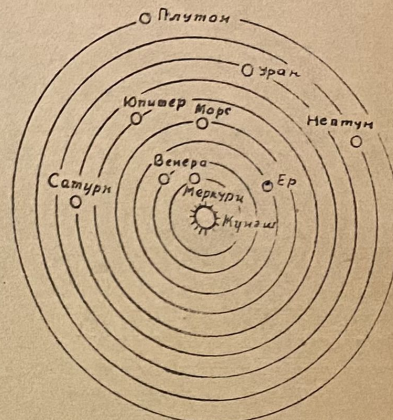 Плутон
Уран
Юпитер Марс
Нептун
Венера
Сатурн
Меркури
Ер
Куяш